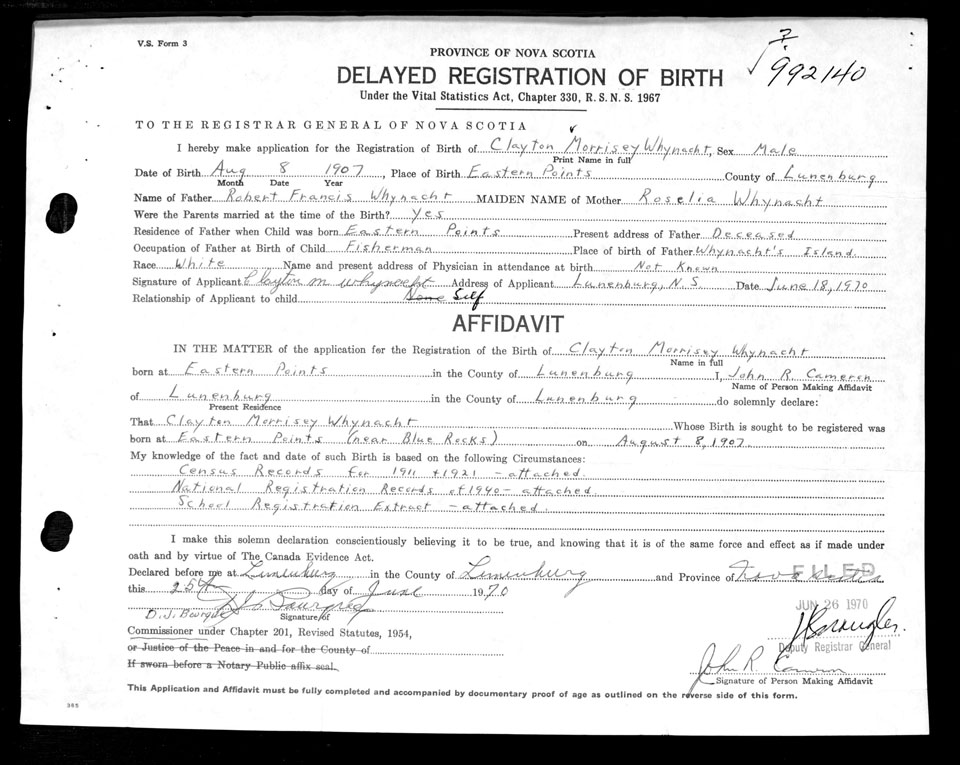 V.S. Form 3
992140
PROVINCE OF NOVA SCOTIA
DELAYED REGISTRATION OF BIRTH
Under the Vital Statistics Act, Chapter 330, R.S.N.S. 1967
TO THE REGISTRAR GENERAL OF NOVA SCOTIA
I hereby make application for the Registration of Birth of Clayton Morrisey Whynacht, Sex Male
Print Name in full
Date of Birth Aug 8 1907, Place of Birth Eastern Points County of Lunenburg
Month Date Year
Name of Father Robert Francis Whynacht MAIDEN NAME of Mother Roselia Whynacht
Were the Parents married at the time of the Birth? Yes
Residence of Father when Child was born Eastern Points Present address of Father Deceased
Occupation of Father at Birth of Child Fisherman Place of birth of Father Whynacht's Island
Race White Name and present address of Physician in attendance at birth Not Known
Signature of Applicant Clayton M Whynacht Address of Applicant Lunenburg, N.S. Date June 18, 1970
Relationship of Applicant to child Self
AFFIDAVIT
IN THE MATTER of the application for the Registration of the Birth of Clayton Morrisey Whynacht
Name in full
born at Eastern Points in the County of Lunenburg I, John R. Cameron
Name of Person Making Affidavit
of Lunenburg in the County of Lunenburg do solemnly declare:
Present Residence
That Clayton Morrisey Whynacht Whose Birth is sought to be registered was
born at Eastern Points (near Blue Rocks) on August 8, 1907.
My knowledge of the fact and date of such Birth is based on the following Circumstances:
Census Records for 1911 + 1921 - attached.
National Registration Records of 1940 - attached.
School Registration Extract - attached.
I make this solemn declaration conscientiously believing it to be true, and knowing that it is of the same force and effect as if made under
oath and by virtue of The Canada Evidence Act.
Declared before me at Lunenburg in the County of Lunenburg and Province of Nova Scotia
FILED
this 25th day of June 1970
JUN 26 1970
D.J. Bourque
Signature of
Commissioner under Chapter 201, Revised Statutes, 1954,
Deputy Registrar General
or Justice of the Peace in and for the County of
If sworn before a Notary Public affix seal.
John R Cameron
Signature of Person Making Affidavit
This Application and Affidavit must be fully completed and accompanied by documentary proof of age as outlined on the reverse side of this form.